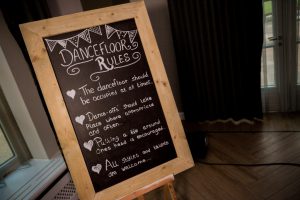 DANCEFLOOR
RULES
The dancefloor should
be occupied at all times.
Dance-offs should take
Place where appropriate
and often.
Pulling a tie around
Ones head is encouraged.
All styles and talents
are welcome...